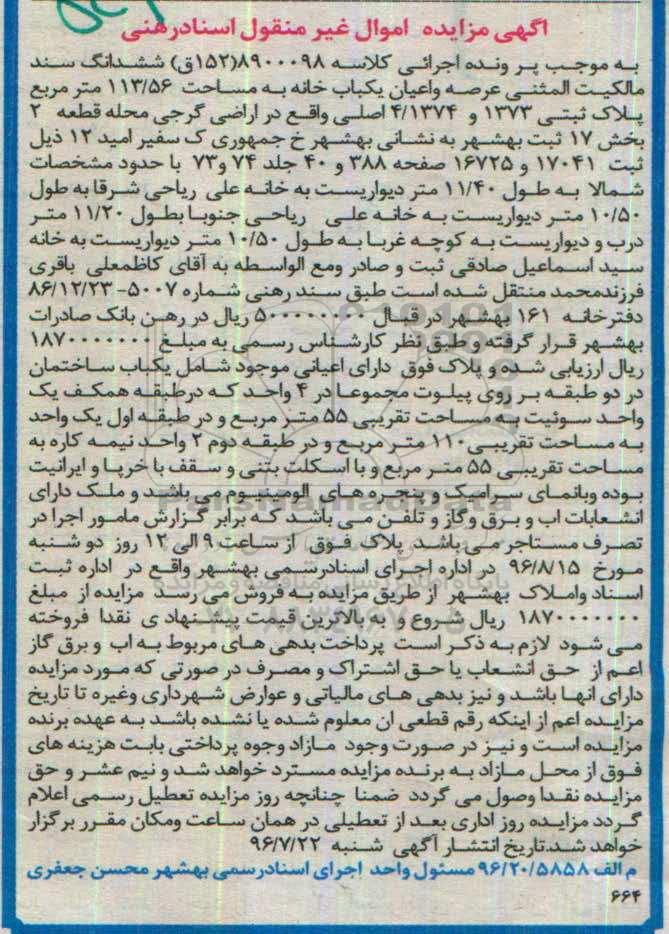 اگهی مزایده اموال غیر منقول اسنادرهنی
به موجب پرونده اجرائی کلاسه ۸۹۰۰۰۹۸(۱۵۲ق) ششدانگ سند
مالکیت المثنی عرصه واعیان یکباب خانه به مساحت ۱۱۳/۵۶ متر مربع
پلاک ثبتی ۱۳۷۳ و ۴/۱۳۷۴ اصلی واقع در اراضی گرجی محله قطعه ۲
بخش ۱۷ ثبت بهشهر به نشانی بهشهر خ جمهوری ک سفیر امید ۱۲ ذیل
ثبت ۱۷۰۴۱ و ۱۶۷۲۵ صفحه ۳۸۸ و ۴۰ جلد ۷۴ و۷۳ با حدود مشخصات
شمالا به طول ۱۱/۴۰ متر دیواریست به خانه علی ریاحی شرقا به طول
۱۰/۵۰ متر دیواریست به خانه علی ریاحی جنوبا بطول ۱۱/۲۰ متر
درب و دیواریست به کوچه غربا به طول ۱۰/۵۰ متر دیواریست به خانه
سید اسماعیل صادقی ثبت و صادر ومع الواسطه به آقای کاظمعلی باقری
فرزندمحمد منتقل شده است طبق سند رهنی شماره ۵۰۰۷-۸۶/۱۲/۲۳
دفترخانه ۱۶۱ بهشهر در قبال ۵۰۰۰۰۰۰۰۰ ریال در رهن بانک صادرات
بهشهر قرار گرفته و طبق نظر کارشناس رسمی به مبلغ ۱۸۷۰۰۰۰۰۰۰
ریال ارزیابی شده و پلاک فوق دارای اعیانی موجود شامل یکباب ساختمان
در دو طبقه بر روی پیلوت مجموعا در ۴ واحد که درطبقه همکف یک
واحد سوئیت به مساحت تقریبی ۵۵ متر مربع و در طبقه اول یک واحد
به مساحت تقریبی۱۱۰ متر مربع و در طبقه دوم ۲ واحد نیمه کاره به
مساحت تقریبی ۵۵ متر مربع و با اسکلت بتنی و سقف با خرپا و ایرانیت
بوده وبانمای سرامیک و پنجره های الومینیوم می باشد و ملک دارای
انشعابات اب و برق وگاز و تلفن می باشد که برابر گزارش مامور اجرا در
تصرف مستاجر می باشد پلاک فوق از ساعت ۹ الی ۱۲ روز دو شنبه
مورخ ۹۶/۸/۱۵ در اداره اجرای اسنادرسمی بهشهر واقع در اداره ثبت
اسناد واملاک بهشهر از طریق مزایده به فروش می رسد مزایده از مبلغ
۱۸۷۰۰۰۰۰۰۰ ریال شروع و به بالاترین قیمت پیشنهاد ی نقدا فروخته
می شود لازم به ذکر است پرداخت بدهی های مربوط به اب و برق گاز
اعم از حق انشعاب یا حق اشتراک و مصرف در صورتی که مورد مزایده
دارای انها باشد و نیز بدهی های مالیاتی و عوارض شهرداری وغیره تا تاریخ
مزایده اعم از اینکه رقم قطعی ان معلوم شده یا نشده باشد به عهده برنده
مزایده است و نیز در صورت وجود مازاد وجوه پرداختی بابت هزینه های
فوق از محل مازاد به برنده مزایده مسترد خواهد شد و نیم عشر و حق
مزایده نقدا وصول می گردد ضمنا چنانچه روز مزایده تعطیل رسمی اعلام
گردد مزایده روز اداری بعد از تعطیلی در همان ساعت ومکان مقرر برگزار
خواهد شد.تاریخ انتشار آگهی شنبه ۹۶/۷/۲۲
م الف ۹۶/۲۰/۵۸۵۸ مسئول واحد اجرای اسنادرسمی بهشهر محسن جعفری
۶۶۴